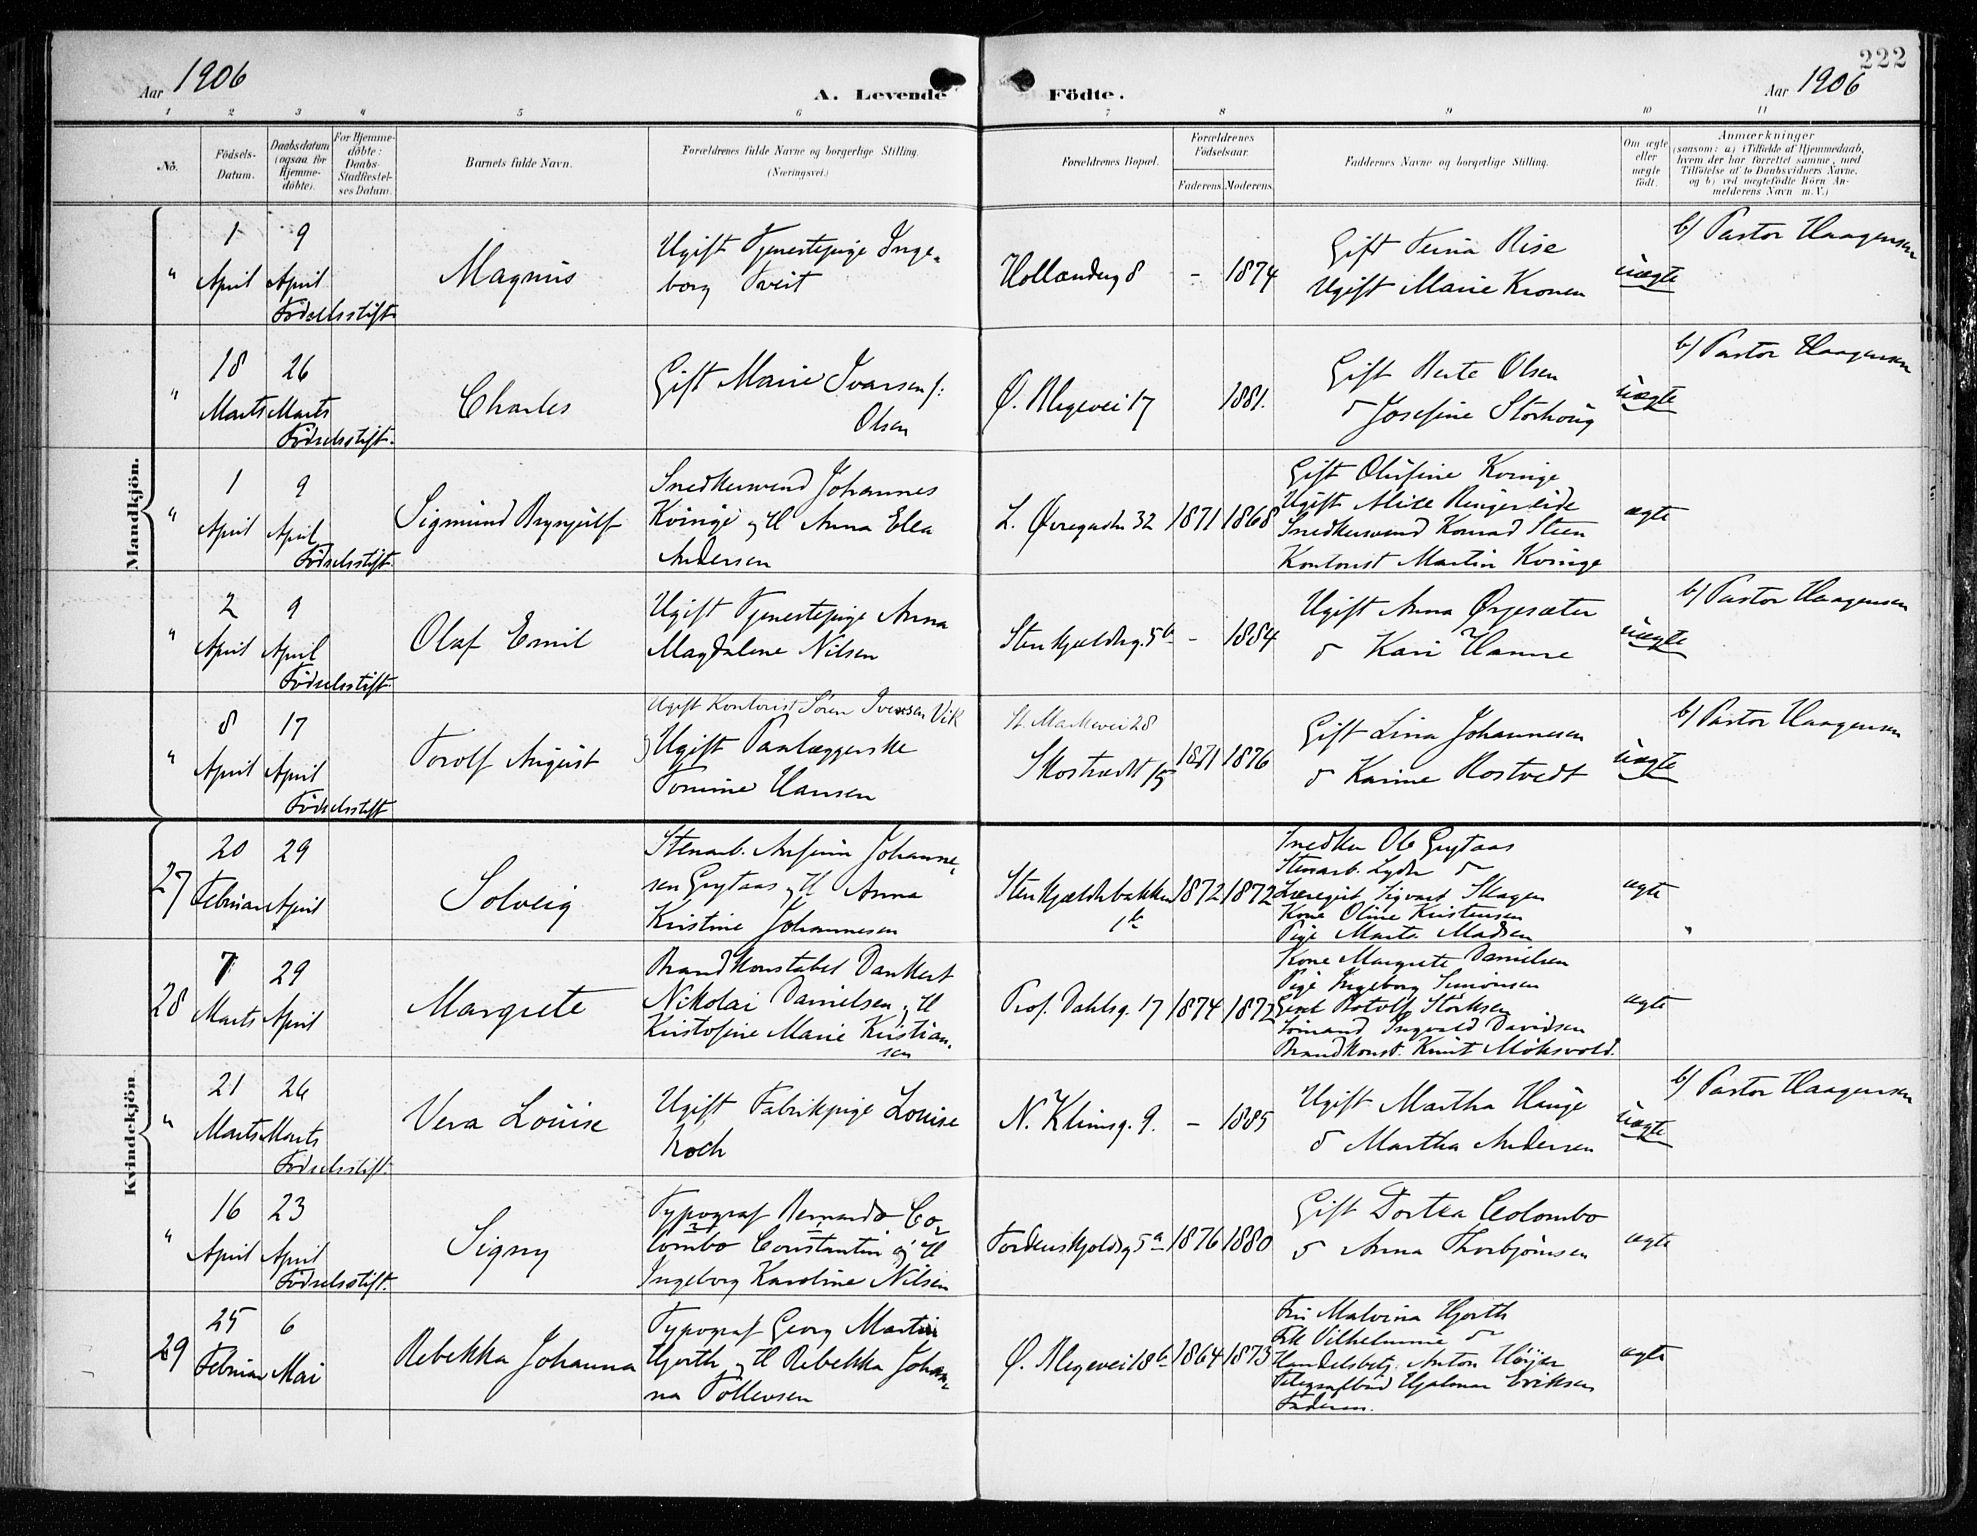 222
Aar 1906
A. Levende
Födte.
Aar 1906
1 2 3 4 5 6 7 8 9 10 11
No.
Födsels-
Datum.
Daabsdatum
(ogsaa for
Hjemme-
döbte).
For Hjemme-
döbte:
Daabs-
Stadfæstel-
ses Datum.
Barnets fulde Navn.
Forældrenes fulde Navne og borgerlige Stilling.
(Næringsvei.)
Forældrenes Bopæl.
Forældrenes
Födselsaar.
Faderens. Moderens.
Faddernes Navne og borgerlige Stilling.
Om ægte
eller
uægte
födt.
Anmærkninger
(saasom: a) i Tilfælde af Hjemmedaab,
hvem der har forrettet samme, med
Tilföielse af to Daabsvidners Navne.
og b) ved uægtefödte Börn An-
melderens Navn m. V.)
Mandkjön.
" 1 April
9 April
Födselsstift.
Magnus
Ugift Tjenestepige Inge-
borg Tveit
Hollænderg 8
- 1874
Gift Ferina Rise
Ugift Marie Kronen
uægte
b) Pastor Haagensen
" 18 Marts
26 Marts
Födselsstift.
Charles
Gift Marie Ivarsen f:
Olsen
Ø. Blegevei 17
1881.
Gift Berte Olsen
Josefine Storhoug
uægte
b) Pastor Haagensen
" 1 April
9 April
Födselsstift.
Sigmund Brynjulf
Snedkersvend Johannes
Kvinge og H Anna Elea
Andersen
L. Øvregaden 32
1871 1868
Gift Olufine Kvinge
Ugift Alise Ringereide
Snedkersvend Konrad Steen
Kontorist Martin Kvinge
ægte
" 2 April
9 April
Födselsstift.
Olaf Emil
Ugift Tjenestepige Anna
Magdalene Nilsen
Stenkjelderg. 5b
- 1884
Ugift Anna Øyesæter
Kari Hamre
uægte
b) Pastor Haagensen
" 8 April
17 April
Födselsstift
Torolf August
Ugift Kontorist Sören Iversen Vik
Ugift Paalæggerske
Tomine Hansen
St. Markevei 28
Skostrædet 15
1871 1876
Gift Lina Johannesen
Karine Rostvedt
uægte
b) Pastor Haagensen
Kvindekjön
27
20 Februar
29 April
Solveig
Stenarb. Anfinn Johanne-
sen Grytaas og H Anna
Kristine Johannesen
Stenkjælderbakken
1b
1872 1872
Snedker Ole Grytaas
Stenarb. Lyder
Læregut Sigvart Skagen
Kone Oline Kristensen
Pige Marta Madsen
ægte
28
7 Marts
29 April
Margrete
Brandkonstabel Dankert
Nikolai Danielsen og H
Kristofine Marie Kristian-
sen
Prof. Dahlsg. 17
1874 1872
Kone Margrete Danielsen
Pige Ingeborg Simonsen
Rotolf Störksen
Sömand Ingvald Davidsen
Brandkonst. Knut Möksvold.
ægte
" 21 Marts
26 Marts
Födselsstift.
Vera Louise
Ugift Fabrikpige Louise
Koch
N. Klimsg. 9.
- 1885
Ugift Martha Hauge
Martha Andersen
uægte
b) Pastor Haagensen
" 16 April
23 April
Födselsstift.
Signy
Typograf Bernardo Co-
lombo Constantin og H
Ingeborg Karoline Nilsen
Tordenskjoldsg 5a
1876 1880
Gift Dortea Colombo
Anna Thorbjörnsen
ægte
29
25 Februar
6 Mai
Rebekka Johanna
Typograf Georg Martin
Hjorth og H Rebekka Johan-
na Tollevsen
Ø. Blegevei 18b
1864 1873
Fru Malvina Hjorth
Frk Vilhelmine
Handelsbetj. Anton Höijer
Telegrafbud Hjalmar Eriksen
Faderen.
ægte